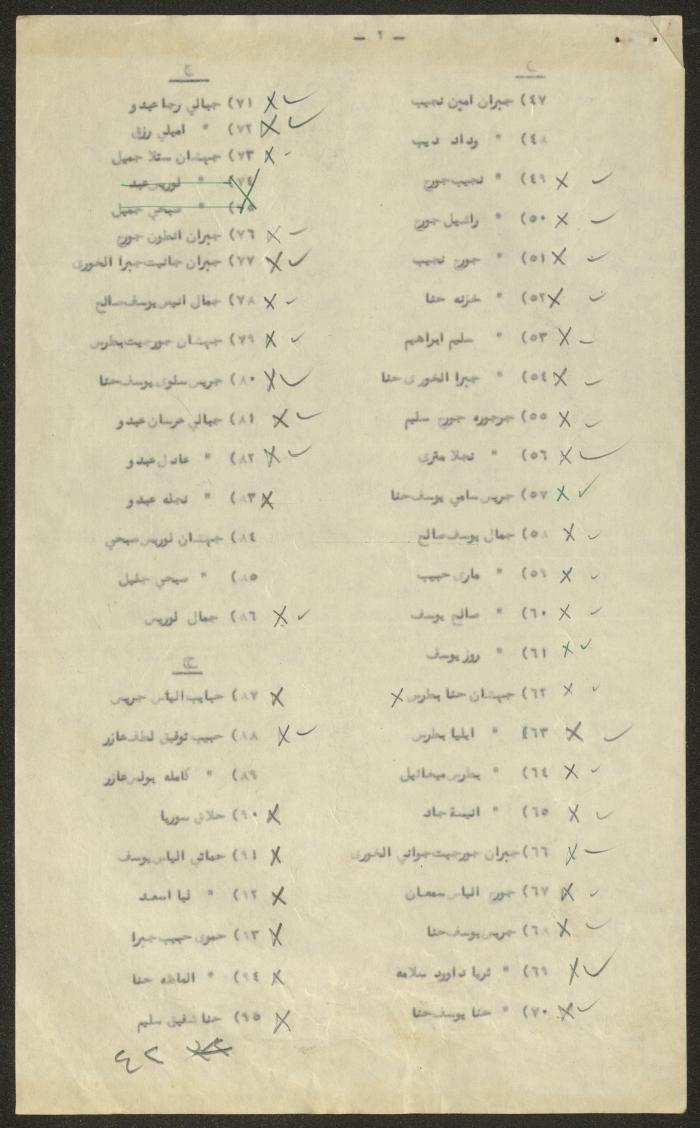 - ٢ -
ج
٤٧) جبران امين نجيب
٤٨) " وداد ديب
٤٩) " نجيب جورج
٥٠) " راشيل جورج
٥١) " جورج نجيب
٥٢) " خزنه حنا
٥٣) " سليم ابراهيم
٥٤) " جبرا الخورى حنا
٥٥) جرجوره جورج سليم
٥٦) " نجلا مترى
٥٧) جريس سامي يوسف حنا
٥٨) جمال يوسف صالح
٥٩) " مارى حبيب
٦٠) " صالح يوسف
٦١) " روز يوسف
٦٢) جهشان حنا بطرس
٦٣) " ايليا بطرس
٦٤) " بطرس ميخائيل
٦٥) " انيسة جاد
٦٦) جبران جورجيت جواني الخورى
٦٧) جورج الياس سمعان
٦٨) جريس يوسف حنا
٦٩) " ثريا داورد سلامه
٧٠) " حنا يوسف حنا
ج
٧١) جبالي رجا عبدو
٧٢) " اميلي رزق
٧٣) جهشان ستلا جميل
٧٤) " لوريس عبد
٧٥) " صبحي جميل
٧٦) جبران انطون جورج
٧٧) جبران جانيت جبرا الخورى
٧٨) جمال انيس يوسف صالح
٧٩) جهشان جورجيت بطرس
٨٠) جريس سلوى يوسف حنا
٨١) جبالي عرسان عبدو
٨٢) " عادل عبدو
٨٣) " نجله عبدو
٨٤) جهشان لوريس صبحي
٨٥) " صبحي جليل
٨٦) جمال لوريس
ح
٨٧) حبايب الياس جريس
٨٨) حبيب توفيق لطف عازر
٨٩) " كامله بولس عازر
٩٠) حلاق سوريا
٩١) حماتي الياس يوسف
٩٢) " ليا اسعد
٩٣) حموى حبيب جبرا
٩٤) " الماظه حنا
٩٥) حنا شفيق سليم